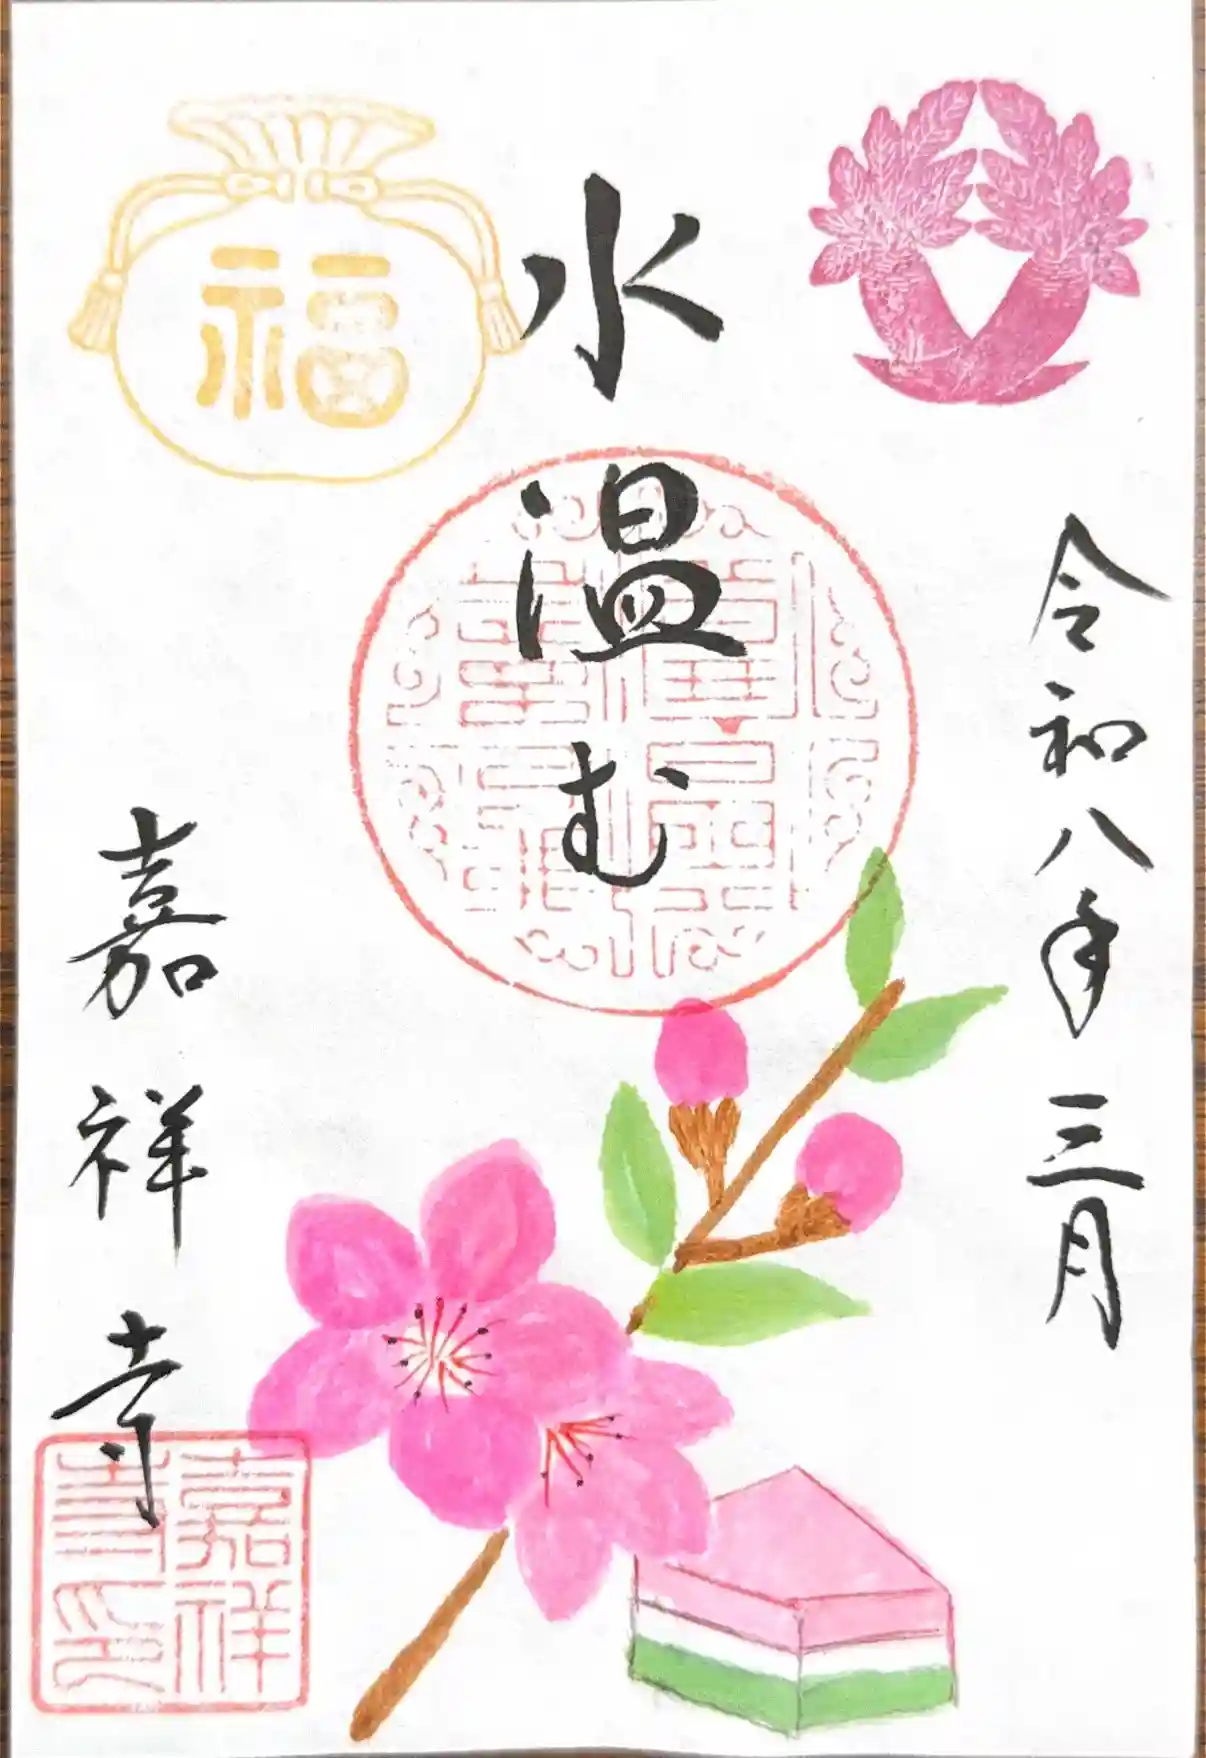 令和八年三月
水温む
福
嘉祥寺
嘉祥
寺印